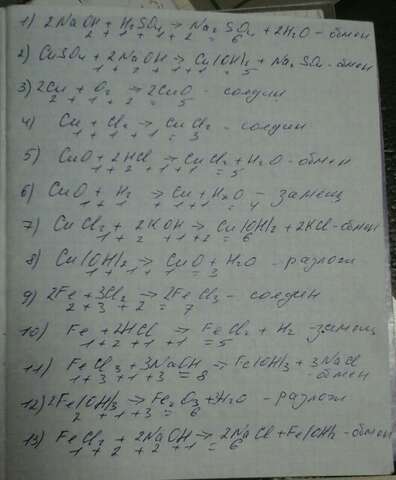 1) 2NaOH + H2SO4 → Na2SO4 + 2H2O - обмен
2 + 1 + 1 + 2 = 6
2) CuSO4 + 2NaOH → Cu(OH)2 + Na2SO4 - обмен
1 + 2 + 1 + 1 = 5
3) 2Cu + O2 → 2CuO - соедин
2 + 1 + 2 = 5
4) Cu + Cl2 → CuCl2 - соедин
1 + 1 + 1 = 3
5) CuO + 2HCl → CuCl2 + H2O - обмен
1 + 2 + 1 + 1 = 5
6) CuO + H2 → Cu + H2O - замещ
1 + 1 + 1 + 1 = 4
7) CuCl2 + 2KOH → Cu(OH)2 + 2KCl - обмен
1 + 2 + 1 + 2 = 6
8) Cu(OH)2 → CuO + H2O - разлож
1 + 1 + 1 = 3
9) 2Fe + 3Cl2 → 2FeCl3 - соедин
2 + 3 + 2 = 7
10) Fe + 2HCl → FeCl2 + H2 - замещ
1 + 2 + 1 + 1 = 5
11) FeCl3 + 3NaOH → Fe(OH)3 + 3NaCl
1 + 3 + 1 + 3 = 8 - обмен
12) 2Fe(OH)3 → Fe2O3 + 3H2O - разлож
2 + 1 + 3 = 6
13) FeCl2 + 2NaOH → 2NaCl + Fe(OH)2 - обмен
1 + 2 + 2 + 1 = 6